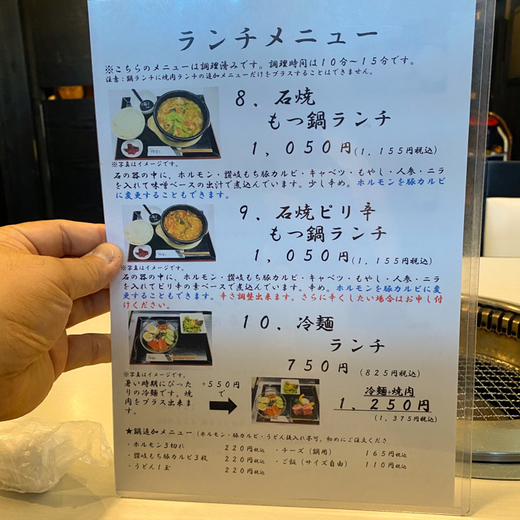 ランチメニュー
※こちらのメニューは調理済みです。調理時間は10分～15分です。
注意：鍋ランチに焼肉ランチの追加メニューだけをプラスすることはできません。
8．石焼
もつ鍋ランチ
1,050円(1,155円税込)
※写真はイメージです。
石の器の中に、ホルモン・讃岐もち豚カルビ・キャベツ・もやし・人参・ニラ
を入れて味噌ベースの出汁で煮込んでいます。少し辛め。ホルモンを豚カルビ
に変更することもできます。
9．石焼ピリ辛
もつ鍋ランチ
1,050円(1,155円税込)
※写真はイメージです。
石の器の中に、ホルモン・讃岐もち豚カルビ・キャベツ・もやし・人参・ニラ
を入れてピリ辛の素ベースで煮込んでいます。辛め。ホルモンを豚カルビに変
更することもできます。辛さ調整出来ます。さらに辛くしたい場合はお申し付
けください。
10．冷麺
ランチ
750円(825円税込)
※写真はイメージです。
暑い時期にぴった
りの冷麺です。焼
肉をプラス出来ます。
+550円
で
冷麺+焼肉
1,250円
(1,375円税込)
★鍋追加メニュー(ホルモン・豚カルビ・うどん後入れ不可。初めにご注文くださ
・ホルモン3切れ 220円税込 ・チーズ(鍋用) 165円税込
・讃岐もち豚カルビ3枚 220円税込 ・ご飯(サイズ自由) 110円税込
・うどん1玉 220円税込